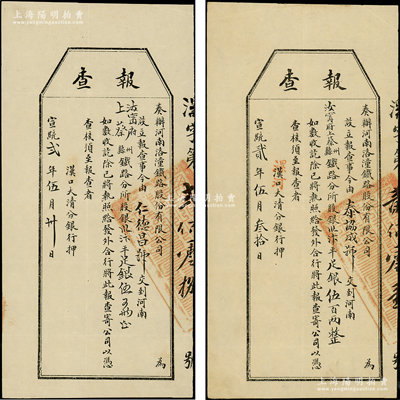 上海陽明拍賣
報查
奏辦河南洛潼鐵路股份有限公司 為
設立報查事今由仁德昌號交到河南
汝甯府 州
上蔡縣鐵路分所股銀汴平足銀伍百兩正
如數收訖除已將執照給發外合行將此報查寄公司以憑
查核須至報查者
漢口大清分銀行押
宣統貳年伍月卅日
號
上海陽明拍賣
報查
奏辦河南洛潼鐵路股份有限公司 為
設立報查事今由泰協成號交到河南
汝甯府上蔡州縣鐵路分所股銀汴平足銀伍百兩整
如數收訖除已將執照給發外合行將此報查寄公司以憑
查核須至報查者
漢口大清分銀行押
宣統貳年伍月叁拾日
號